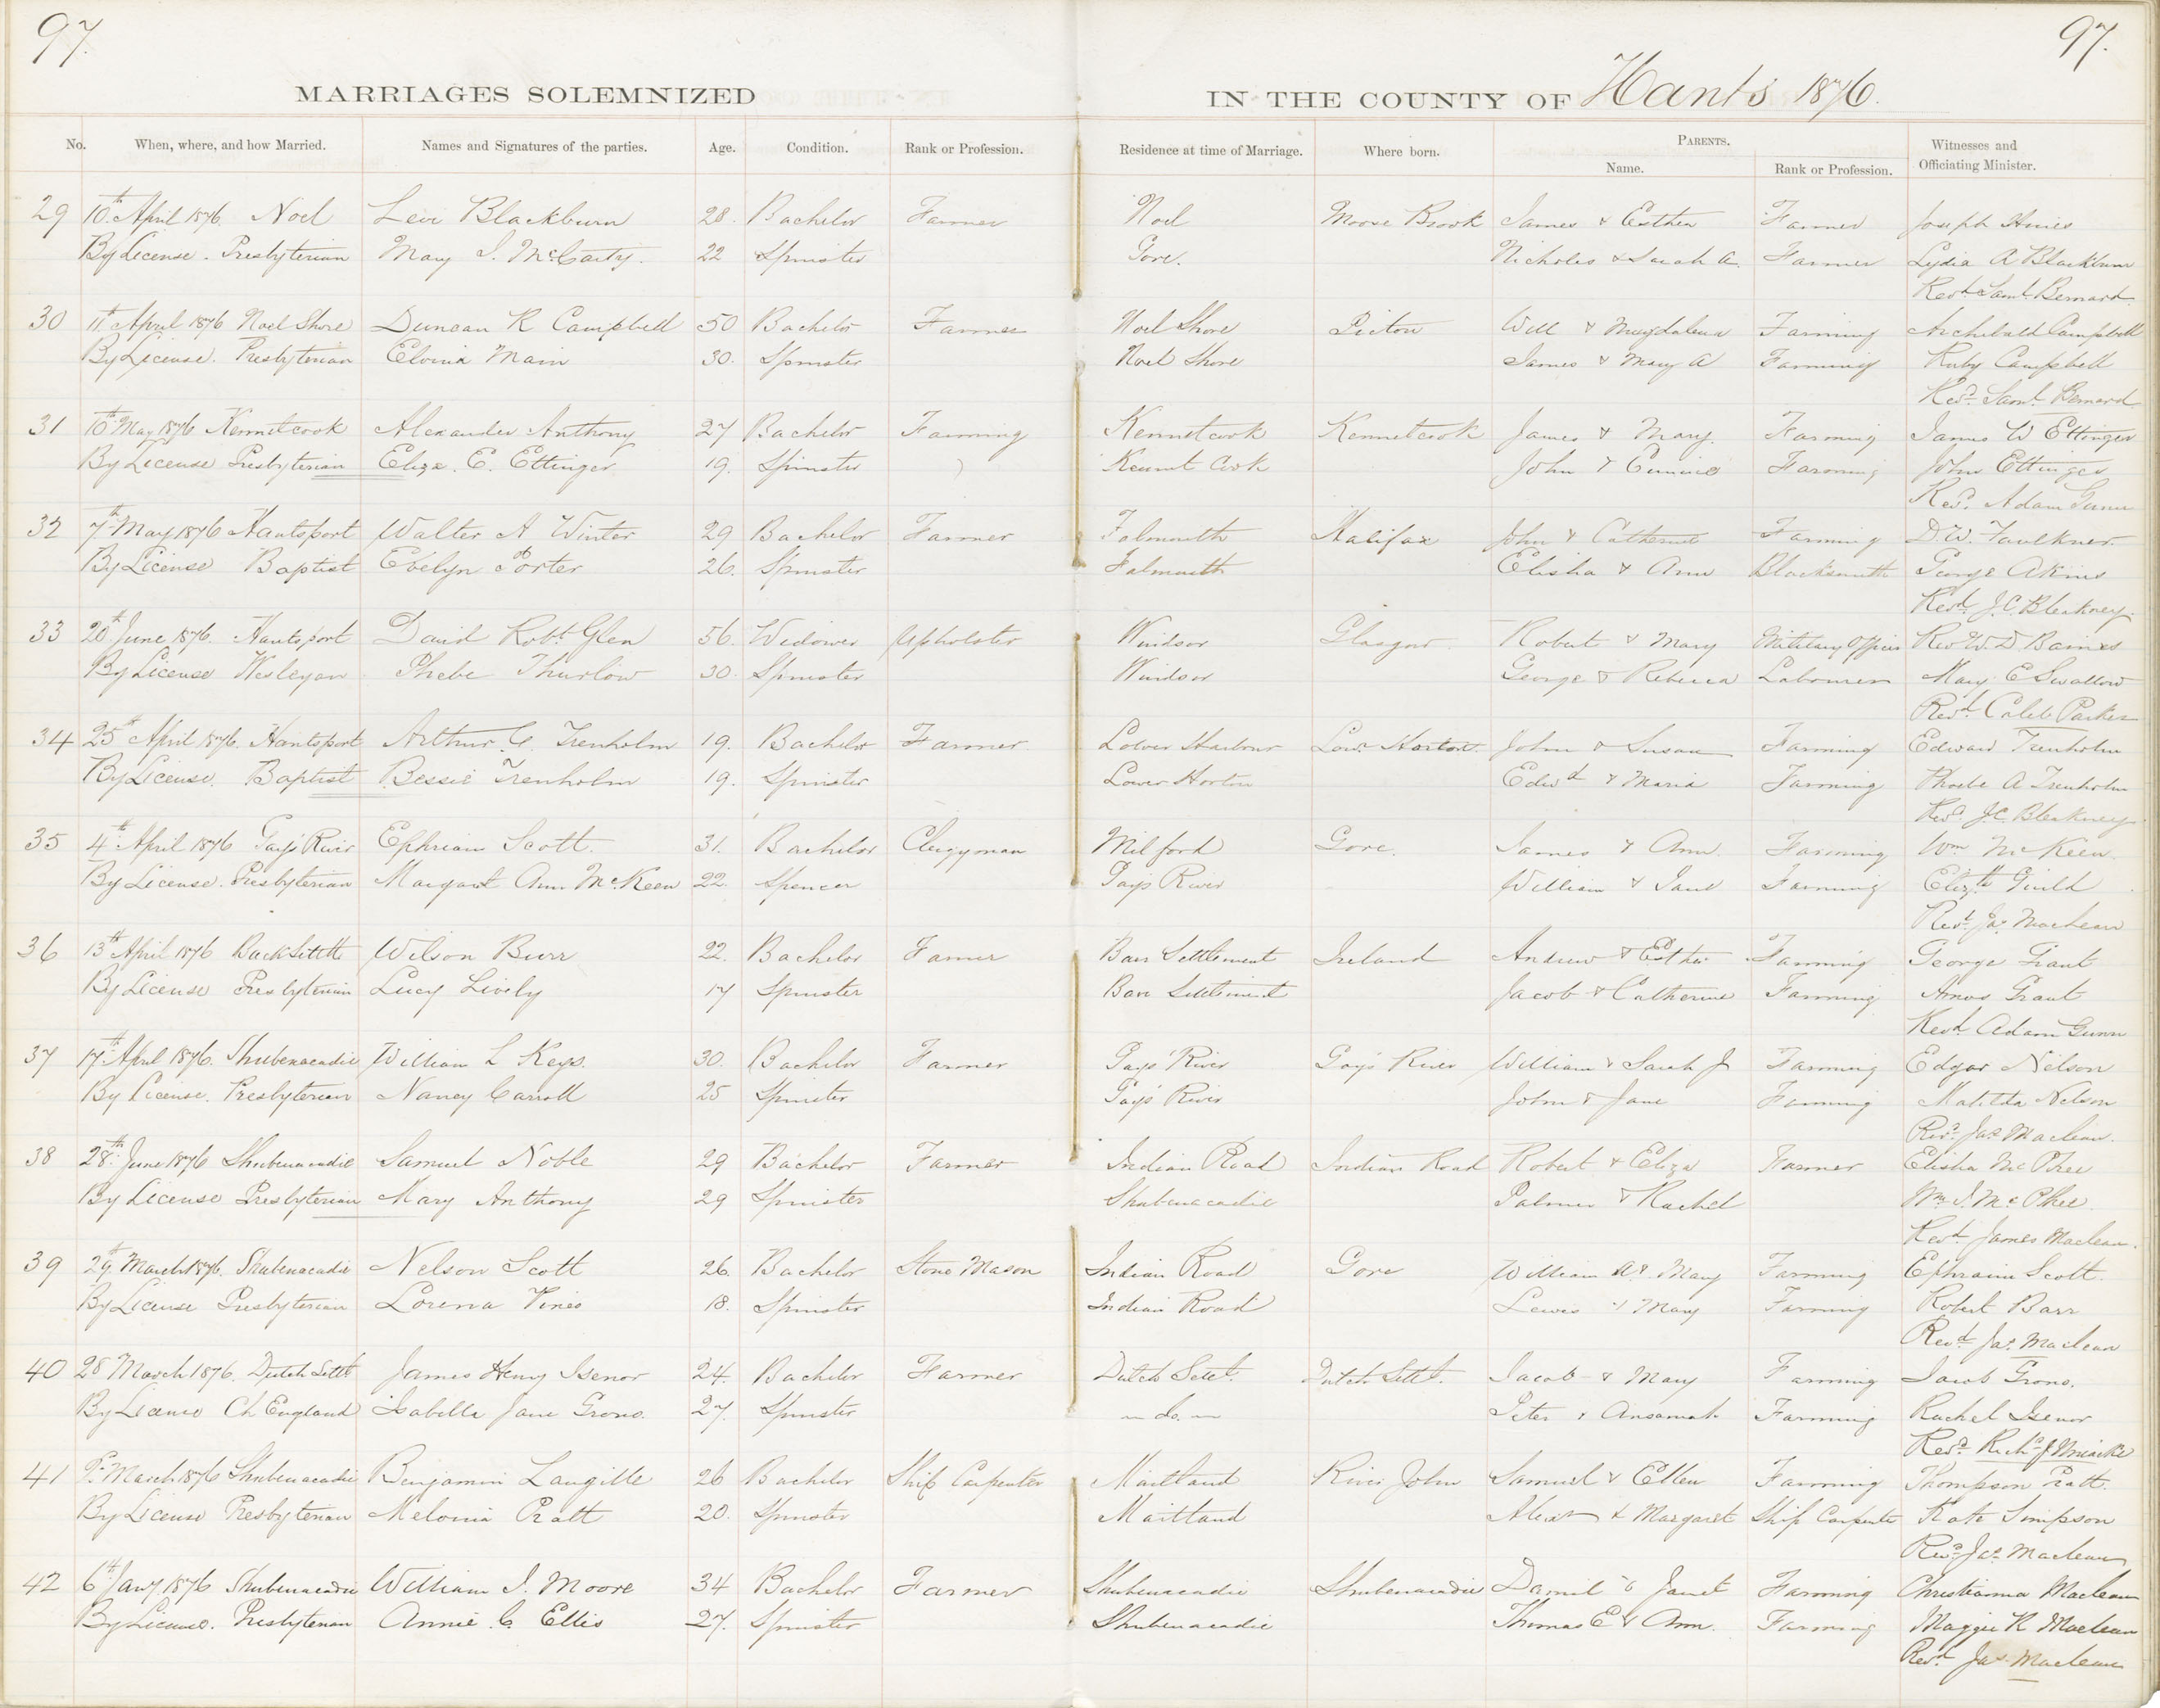 97. 97.
MARRIAGES SOLEMNIZED IN THE COUNTY OF Hants 1876.
No. When, where, and how Married. Names and Signatures of the parties. Age. Condition. Rank or Profession. Residence at time of Marriage. Where born. PARENTS. Witnesses and
Name. Rank or Profession. Officiating Minister.
29 10th April 1876. Noel Levi Blackburn 28. Bachelor Farmer Noel Moose Brook James & Esther Farmer Joseph Hines
By License. Presbyterian Mary J. McCarty. 22 Spinster Gore. Nicholas & Sarah A. Farmer Lydia A Blackburn
Revd Saml. Bernard.
30 11th April 1876 Noel Shore Duncan R Campbell 50 Bachelor Farmer Noel Shore Pictou Will & Magdalena Farming Archibald Campbell
By License. Presbyterian Elvina Main 30. Spinster Noel Shore James & Mary A Farming Ruby Campbell
Revd. Saml. Bernard
31 10th May 1876 Kennetcook Alexander Anthony 27 Bachelor Farming Kennetcook Kennetcook James & Mary. Farming James W Ettinger
By License Presbyterian Eliza. E. Ettinger 19. Spinster Kennet Cook John & Farming John Ettinger
Revd. Adam Gunn
32 7th May 1876 Hantsport Walter A Winter 29 Bachelor Farmer Falmouth Halifax John & Catherine Farming D.W. Faulkner.
By License Baptist Evelyn Porter 26. Spinster Falmouth Elisha & Ann Blacksmith George Akins
Revd. J.C. Bleakney.
33 20th June 1876. Hantsport David Robt Glen 56. Widower Upholster Windsor Glasgow Robert & Mary Military Officer Rev W. D Baines
By License Wesleyan Phebe Thurlow 30. Spinster Windsor George & Rebecca Labourer Mary E Swallow
Revd. Caleb Parker
34 25th April 1876. Hantsport Arthur C. Trenholm 19. Bachelor Farmer Lower Harbour Lowr Horton. John & Susan Farming Edward Trenholm
By License. Baptist Bessie Trenholm 19. Spinster Lower Horton Edwd & Maria Farming Phoebe A Trenholm
Revd. J.C. Bleakney
35 4th April 1876 Gays River Ephriam Scott. 31. Bachelor Clergyman Milford Gore. James & Ann. Farming Wm McKeen.
By License. Presbyterian Margaret Ann McKeen 22 Spencer Gays River William & Jane Farming Elizth Guild
Revd. Jas. Maclean
36 13th April 1876 Wilson Burr 22. Bachelor Farmer Barr Settlement Ireland Andrew & Esther Farming George Grant
By License Presbyterian Lucy Lively 17 Spinster Barr Settlement Jacob & Catherine Farming Amos Grant
Revd Adam Gunn
37 17th April 1876. Shubenacadie William L Keys. 30. Bachelor Farmer Gays River Gays River William & Sarah J Farming Edgar Nelson
By License. Presbyterian Nancy Carroll 25 Spinster Gays River John & Jane Farming Matilda Nelson
Revd. Jas Maclean.
38 28th June 1876 Shubenacadie Samuel Noble 29 Bachelor Farmer Indian Road Indian Road Robert & Eliza Farmer Elisha McPhee
By License Presbyterian Mary Anthony 29 Spinster Shubenacadie Palmer & Rachel Wm J. McPhee.
Revd. James Maclean.
39 29th March 1876. Shubenacadie Nelson Scott 26. Bachelor Stone Mason Indian Road Gore William A & Mary Farming Ephraim Scott.
By License Presbyterian Lorena Vines 18. Spinster Indian Road Lewis & Mary Farming Robert Barr
Revd. Jas. Maclean
40 28 March 1876. Dutch Settt James Henry Isenor 24. Bachelor Farmer Dutch Settt. Dutch Settt. Jacob & Mary Farming Jacob Grono.
By License Ch England Isabella Jane Grono. 27. Spinster — do. — Peter & Farming Rachel Isenor
Revd. Richd. J Uniacke
41 March 1876 Shubenacadie Benjamin Langille 26 Bachelor Ship Carpenter Maitland River John Samuel & Ellen Farming Thompson Pratt.
By License Presbyterian Melvina Pratt 20. Spinster Maitland Alexr & Margaret Ship Carpenter Kate Simpson
Revd. Jas. Maclean
42 6th Jany. 1876 Shubenacadie William J. Moore 34 Bachelor Farmer Shubenacadie Shubenacadie Daniel & Janet Farming Christianna Maclean
By License. Presbyterian Annie C. Ellis 27. Spinster Shubenacadie Thomas E & Ann. Farming Maggie R Maclean
Revd. Jas. Maclean